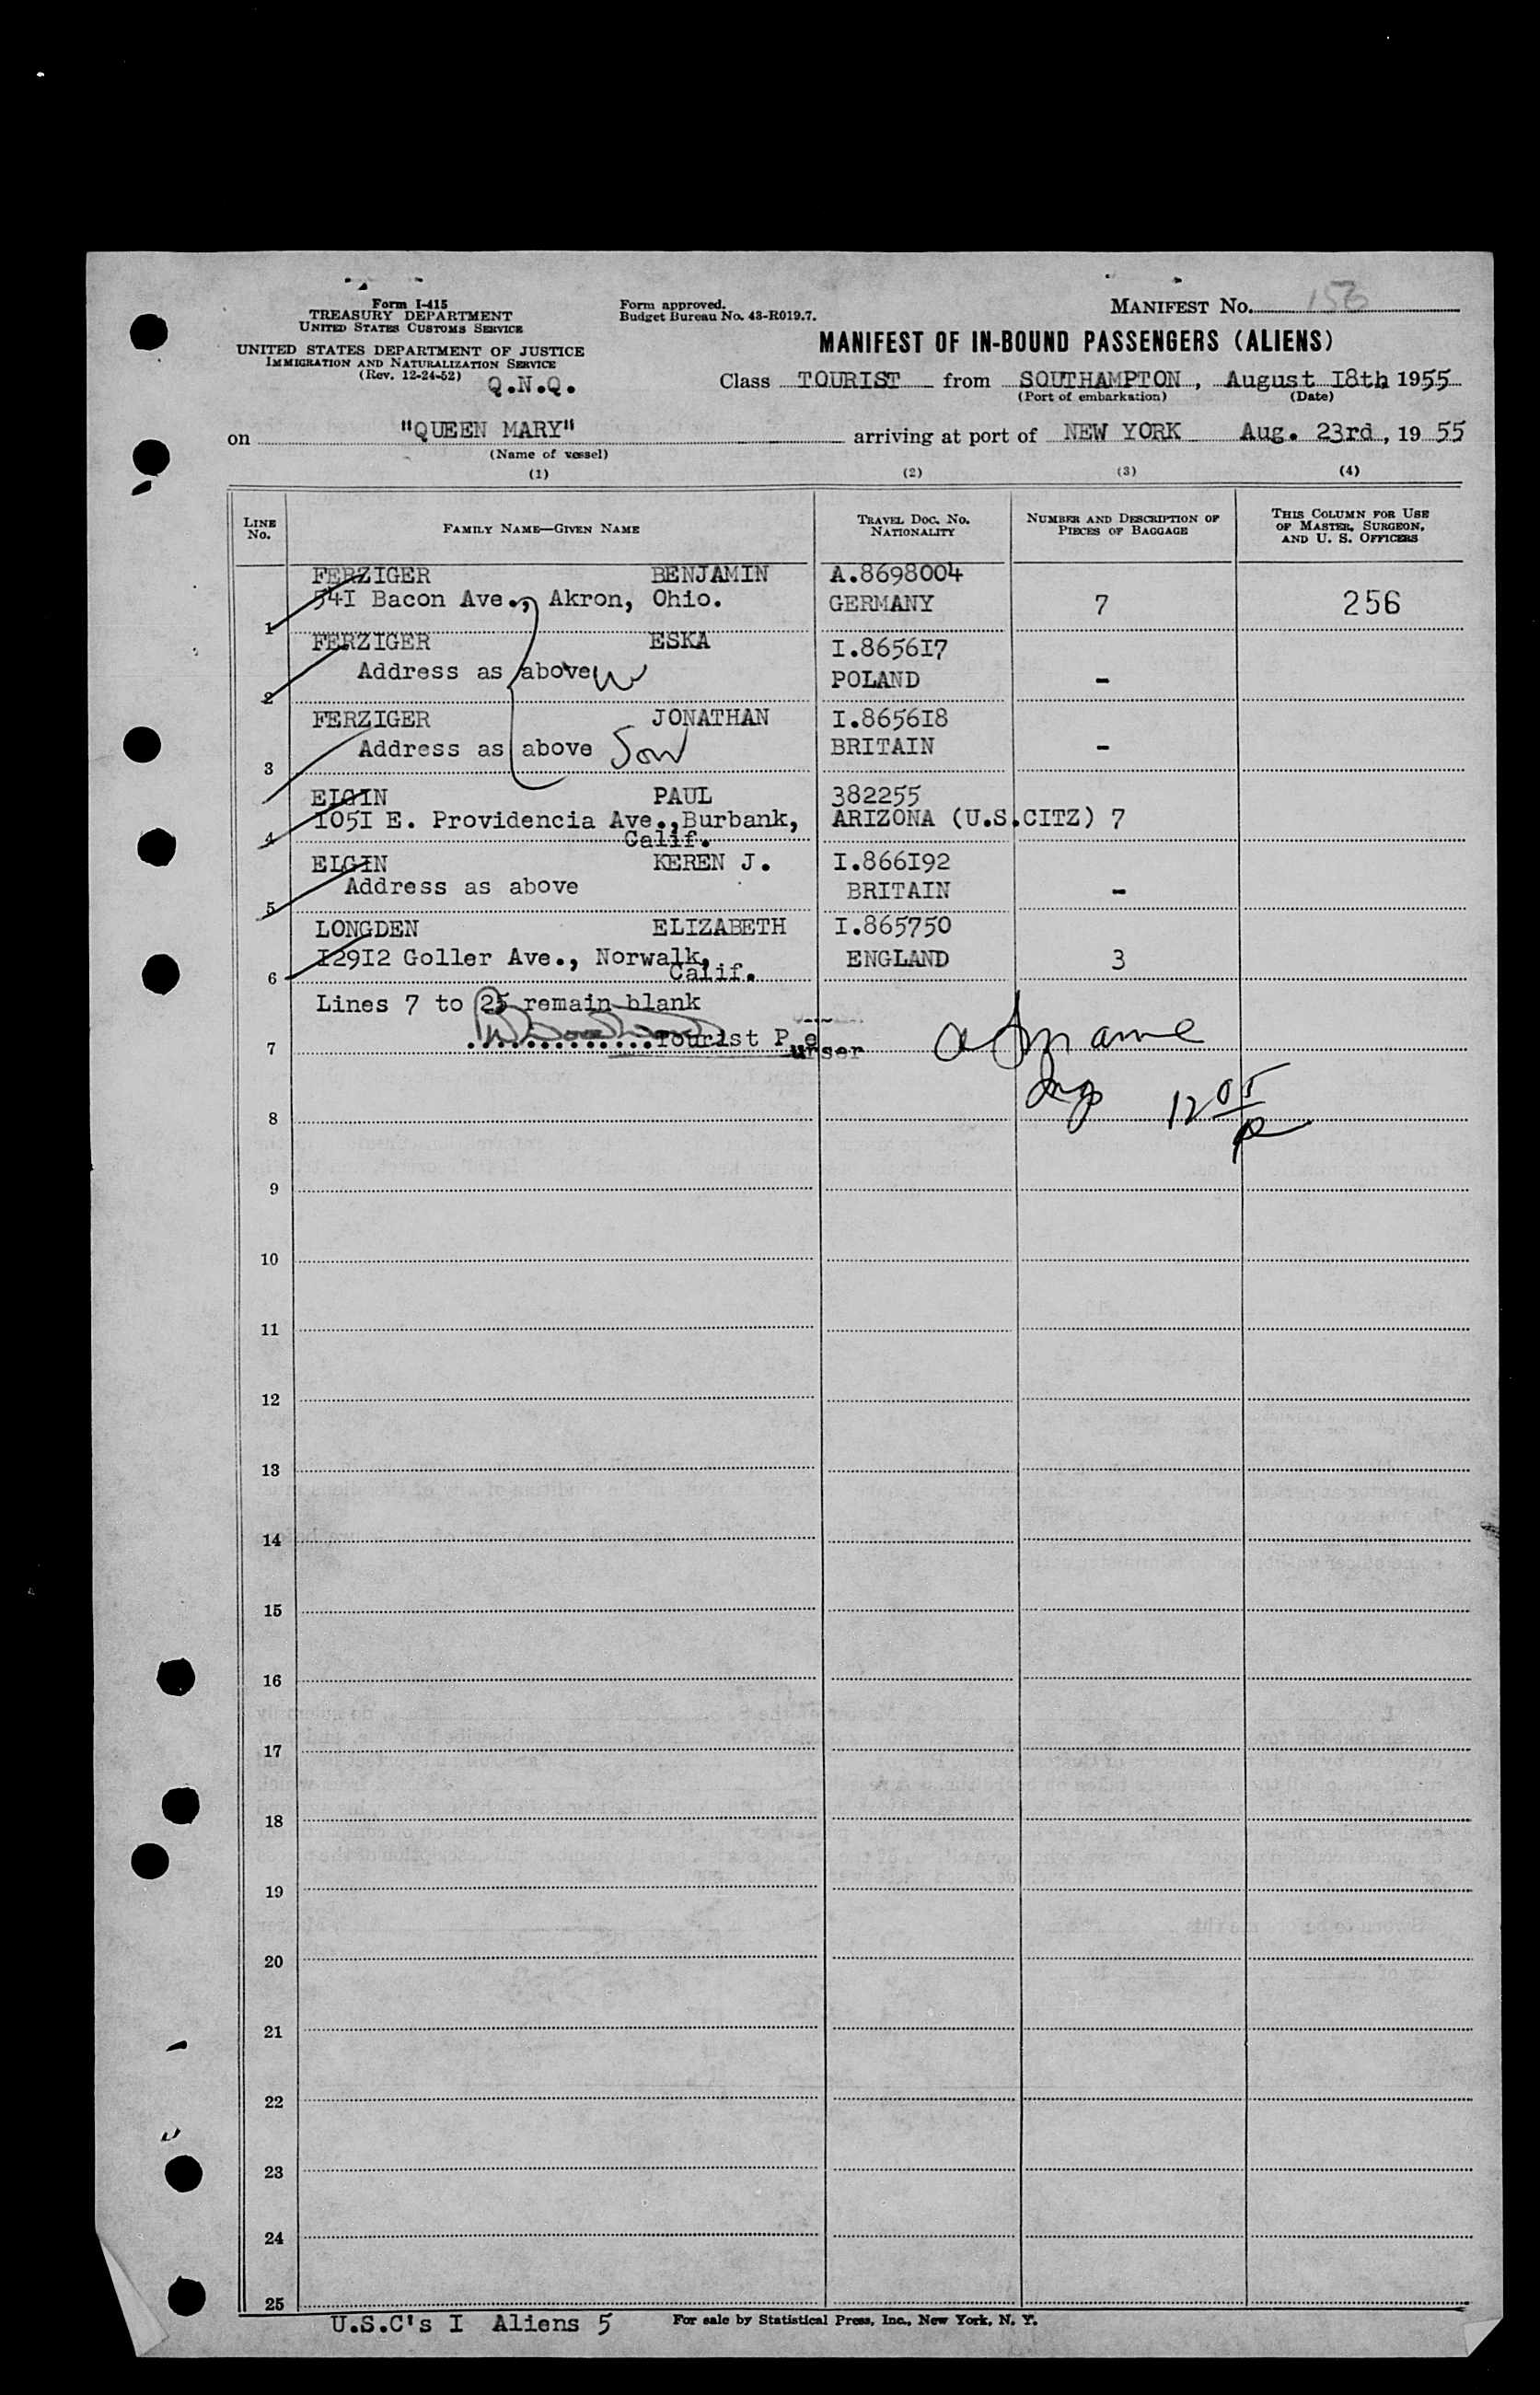 Form I-415
TREASURY DEPARTMENT
UNITED STATES CUSTOMS SERVICE
UNITED STATES DEPARTMENT OF JUSTICE
IMMIGRATION AND NATURALIZATION SERVICE
(Rev. 12-24-52)
Q.N.Q.
Form approved.
Budget Bureau No. 43-R019.7.
MANIFEST No. 156
MANIFEST OF IN-BOUND PASSENGERS (ALIENS)
Class TOURIST from SOUTHAMPTON, August I8th 1955
(Port of embarkation) (Date)
on "QUEEN MARY" arriving at port of NEW YORK Aug. 23rd, 19 55
(Name of vessel)
(1) (2) (3) (4)
LINE No. FAMILY NAME—GIVEN NAME TRAVEL DOC. NO. NATIONALITY NUMBER AND DESCRIPTION OF PIECES OF BAGGAGE THIS COLUMN FOR USE OF MASTER, SURGEON, AND U. S. OFFICERS
FERZIGER BENJAMIN A.8698004
1 54I Bacon Ave., Akron, Ohio. GERMANY 7 256
FERZIGER ESKA I.8656I7
2 Address as above W POLAND -
FERZIGER JONATHAN I.8656I8
3 Address as above Son BRITAIN -
ELGIN PAUL 382255
4 I05I E. Providencia Ave.,Burbank, ARIZONA (U.S.CITZ) 7
Calif.
ELGIN KEREN J. I.866I92
5 Address as above BRITAIN -
LONGDEN ELIZABETH I.865750
6 I29I2 Goller Ave., Norwalk, ENGLAND 3
Calif.
Lines 7 to 25 remain blank
7 Tourist Purser
8 12 05
9
10
11
12
13
14
15
16
17
18
19
20
21
22
23
24
25
U.S.C's I Aliens 5 For sale by Statistical Press, Inc., New York, N. Y.